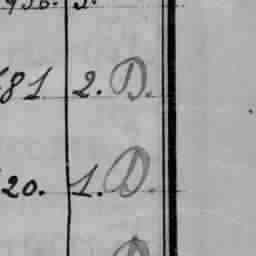 81 2. D.
20. 1. D.